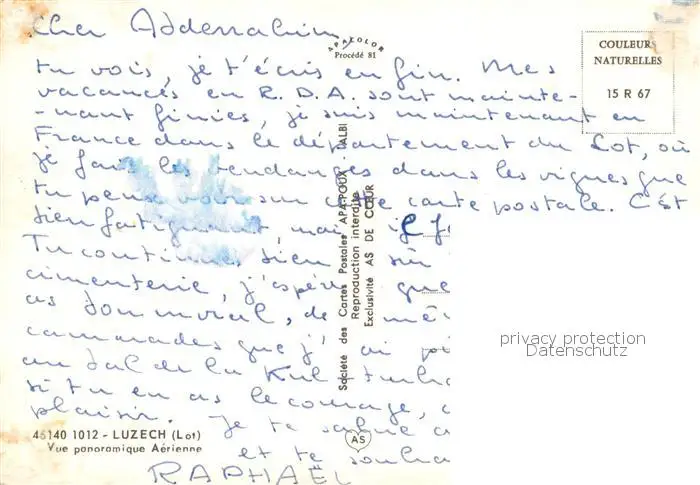 Cher Abderrahim
tu vois, je t'écris enfin. Mes
vacances en R.D.A. sont mainte-
-nant finies, je suis maintenant en
France dans le département du Lot, où
je fais les vendanges dans les vignes que
tu peux voir sur cette carte postale. C'est
bien fatiguant, mais il f
Tu continues bien
cimenterie, j'espère que
as bon moral, de mê
camarades que j'ai
au bal de la Kul
si tu en as le courage,
plaisir. Je te salue
et te souha
RAPHAËL
APA COLOR
Procédé 81
COULEURS
NATURELLES
15 R 67
Société des Cartes Postales APA-POUX - ALBI
Reproduction interdite
Exclusivité AS DE CŒUR
46140 1012 - LUZECH (Lot)
Vue panoramique Aérienne
AS
privacy protection
Datenschutz